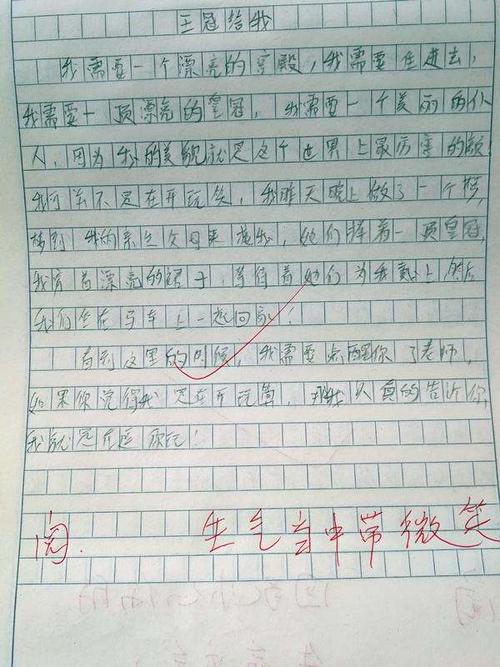 王冠给我
我需要一个漂亮的宫殿，我需要住进去，
我需要一顶漂亮的皇冠，我需要一个美丽的仆
人，因为我的美貌就是这个世界上最厉害的
我可并不是在开玩笑，我昨天晚上做了一个梦，
梦到我的亲生父母来找我，她们拿着一顶皇冠，
我穿着漂亮的裙子，等待着她们为我戴上然后
我们坐在马车上一起回家！
看到这里的时候，我需要来醒你了老师，
如果你觉得我是在开玩笑，那我认真的告诉你，
我就是在逗你玩！
阅. 生气当中带微笑